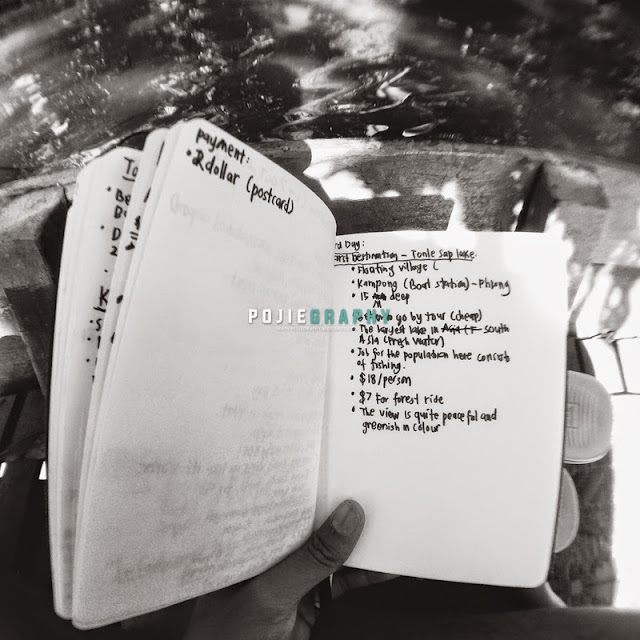 payment:
• 2 dollar (postcard)
rd Day:
First Destination ~ Tonle sap lake.
• Floating village (
• Kampong (Boat station) ~ Phlong
• 15 deep
POJIEGRAPHY
to go by tour (cheap)
• The largest lake in south
Asia (fresh water)
• Job for the population here concists
of fishing.
• $18/person
• $7 for forest ride
• The view is quite peaceful and
greenish in colour